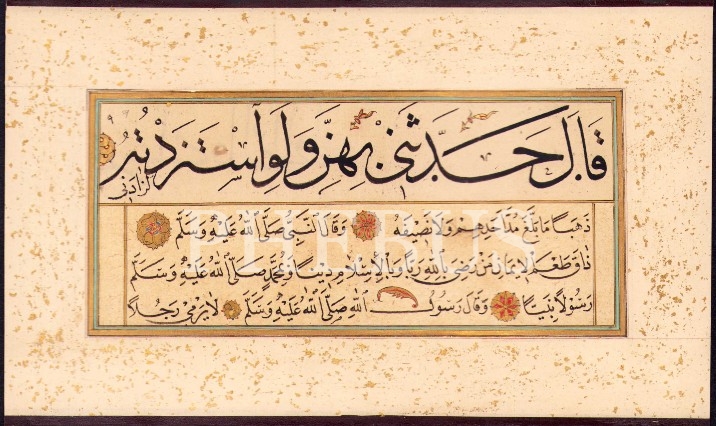 قَالَ حَدَّثَنِي بِهِنَّ وَلَوِ ٱسْتَزَدْتُهُ لَزَادَنِي
ذَهَبًا مَا بَلَغَ مُدَّ أَحَدِهِمْ وَلَا نَصِيفَهُ وَقَالَ ٱلنَّبِيُّ صَلَّى ٱللهُ عَلَيْهِ وَسَلَّمَ
ذَاقَ طَعْمَ ٱلْإِيمَانِ مَنْ رَضِيَ بِٱللهِ رَبًّا وَبِٱلْإِسْلَامِ دِينًا وَبِمُحَمَّدٍ صَلَّى ٱللهُ عَلَيْهِ وَسَلَّمَ
رَسُولًا نَبِيًّا وَقَالَ رَسُولُ ٱللهِ صَلَّى ٱللهُ عَلَيْهِ وَسَلَّمَ لَا يَرْمِي رَجُلًا